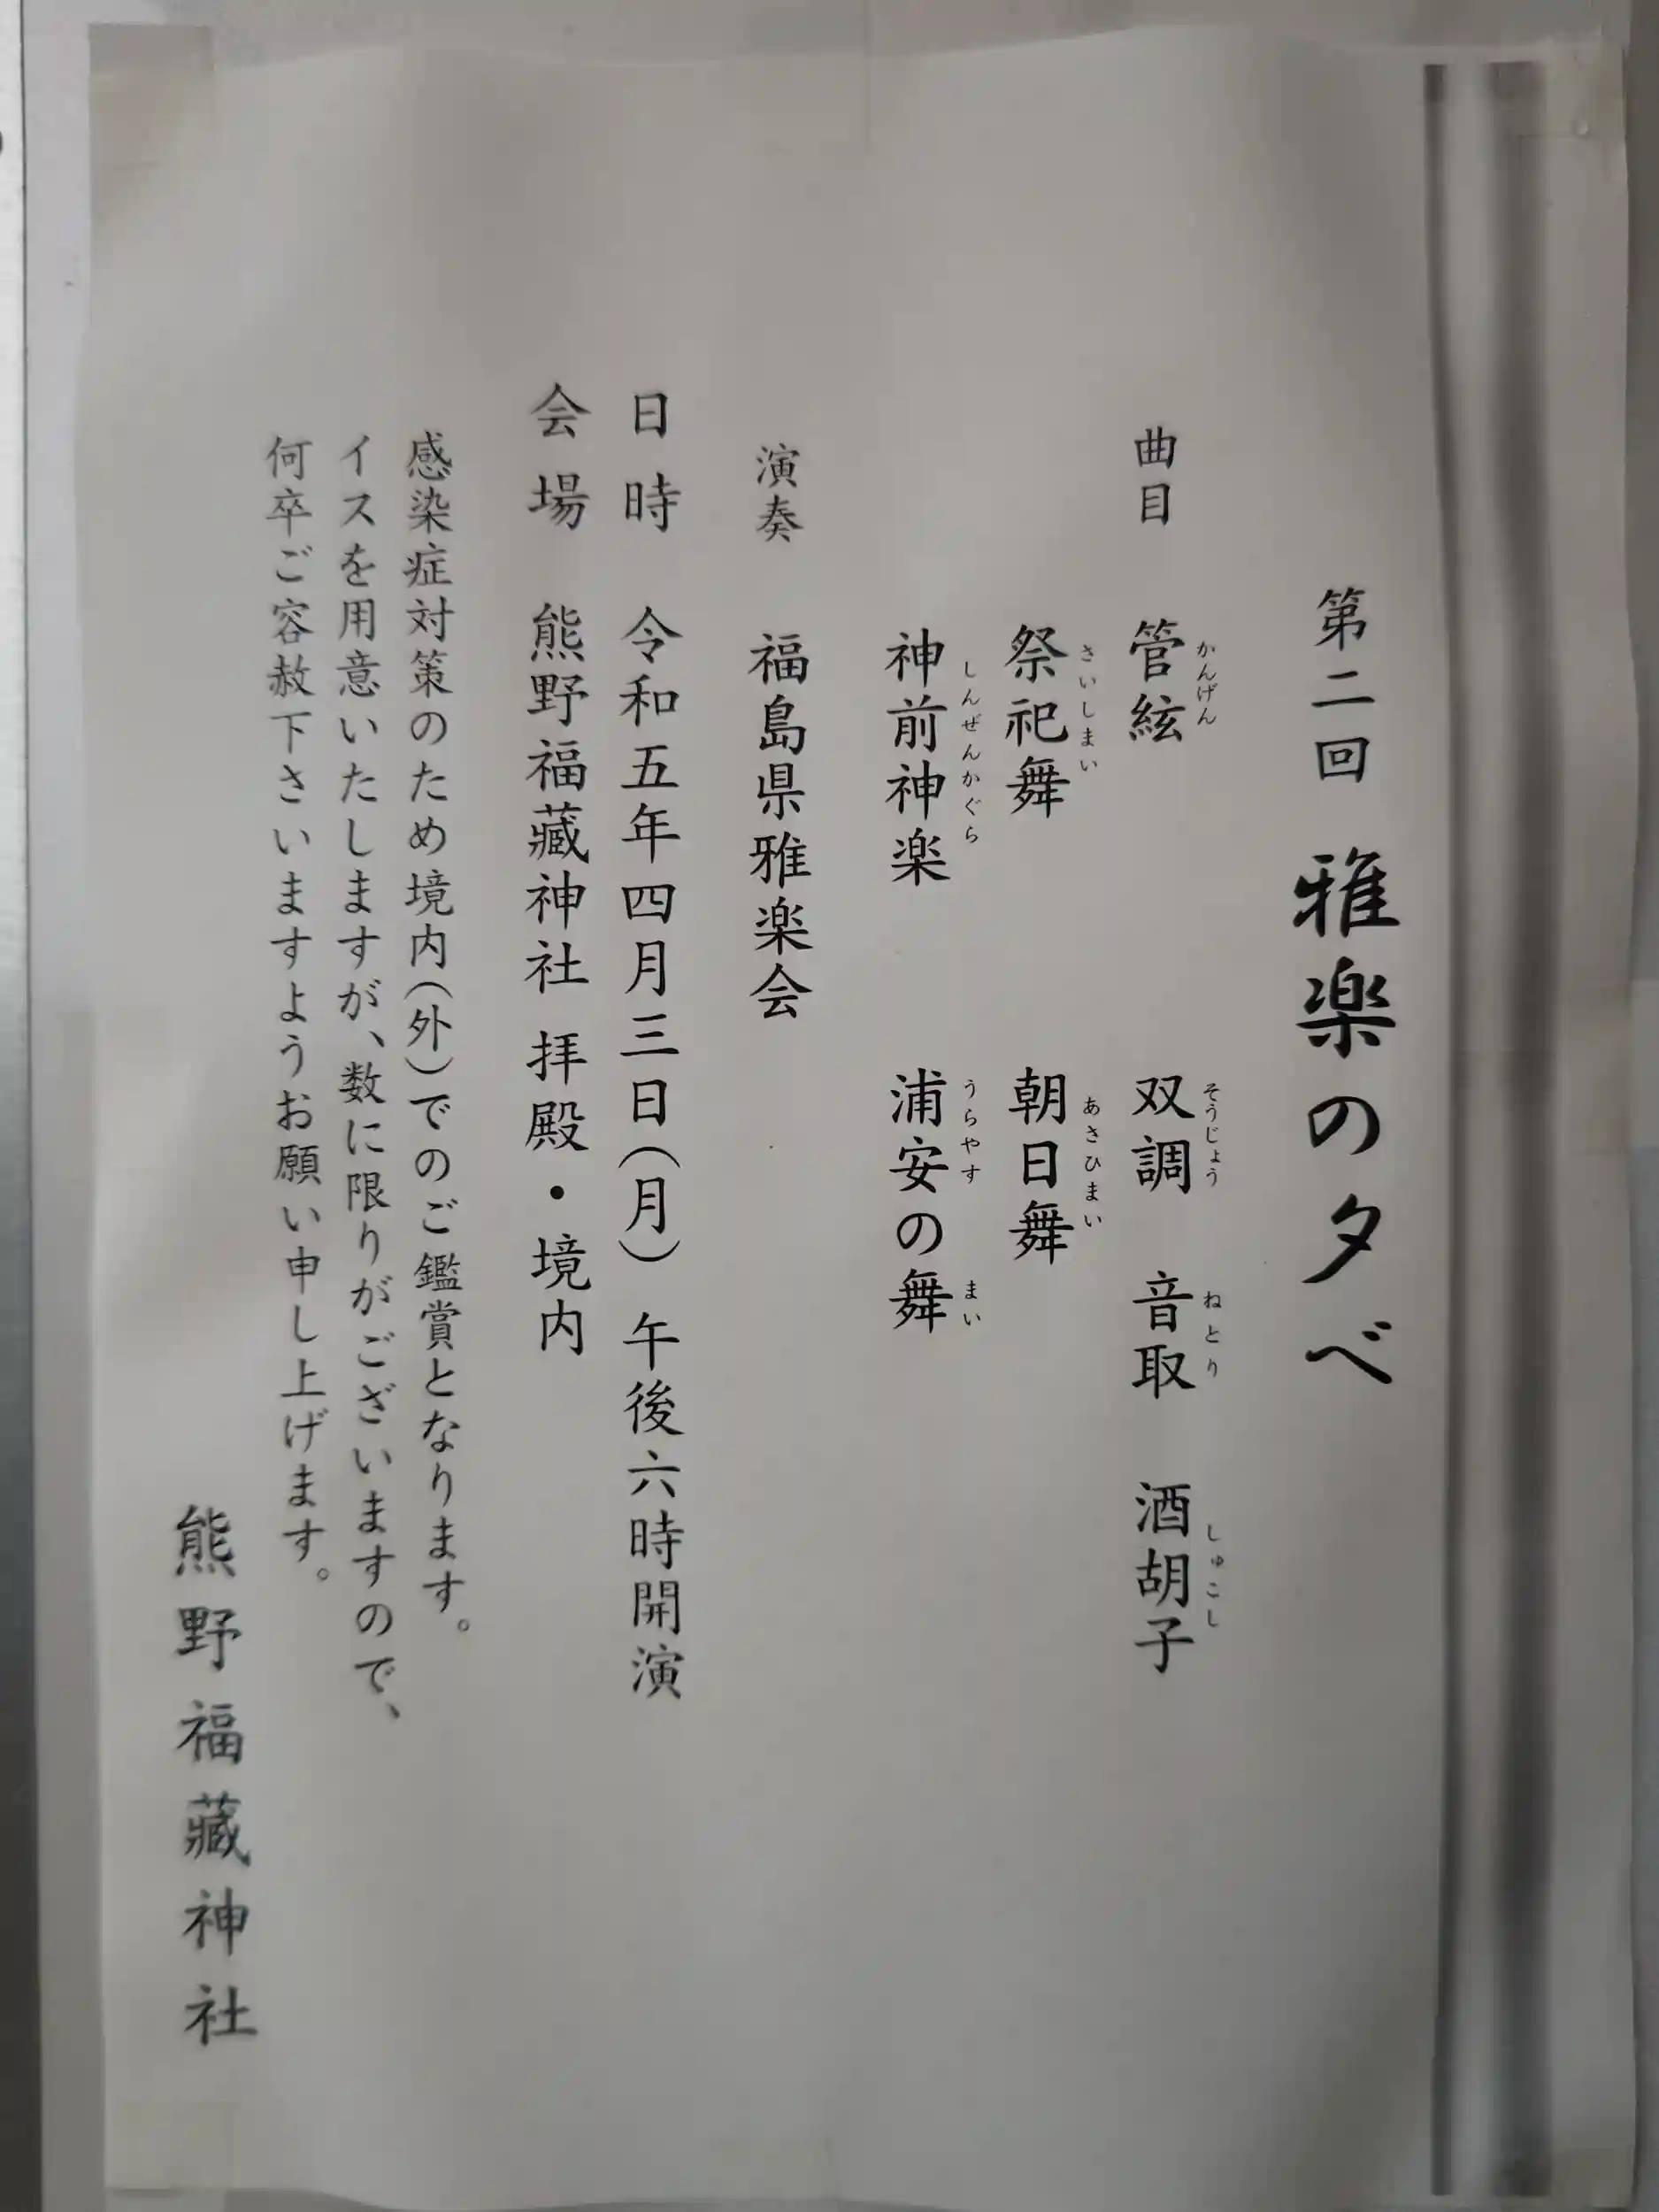 第二回 雅楽の夕べ
曲目 管絃 双調 音取 酒胡子
かんげん そうじょう ねとり しゅこし
祭祀舞 朝日舞
さいしまい あさひまい
神前神楽 浦安の舞
しんぜんかぐら うらやす まい
演奏 福島県雅楽会
日時 令和五年四月三日(月) 午後六時開演
会場 熊野福藏神社 拝殿・境内
感染症対策のため境内(外)でのご鑑賞となります。
イスを用意いたしますが、数に限りがございますので、
何卒ご容赦下さいますようお願い申し上げます。
熊野福藏神社